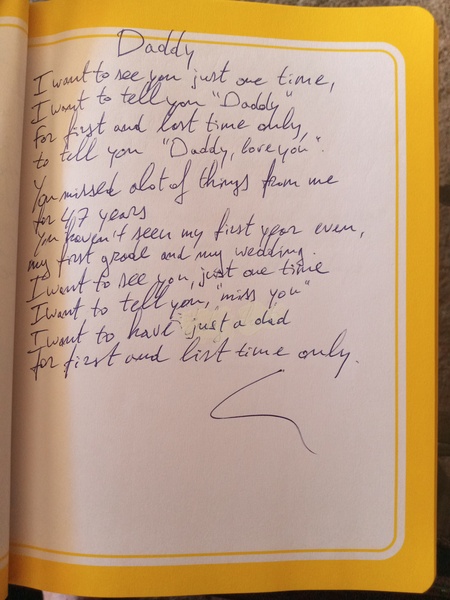 Daddy
I want to see you just one time,
I want to tell you "Daddy"
For first and last time only,
to tell you "Daddy, love you".
You missed alot of things from me
for 47 years
You haven't seen my first year even,
my first grade and my wedding.
I want to see you, just one time
I want to tell you, "miss you"
I want to have just a dad
for first and list time only.